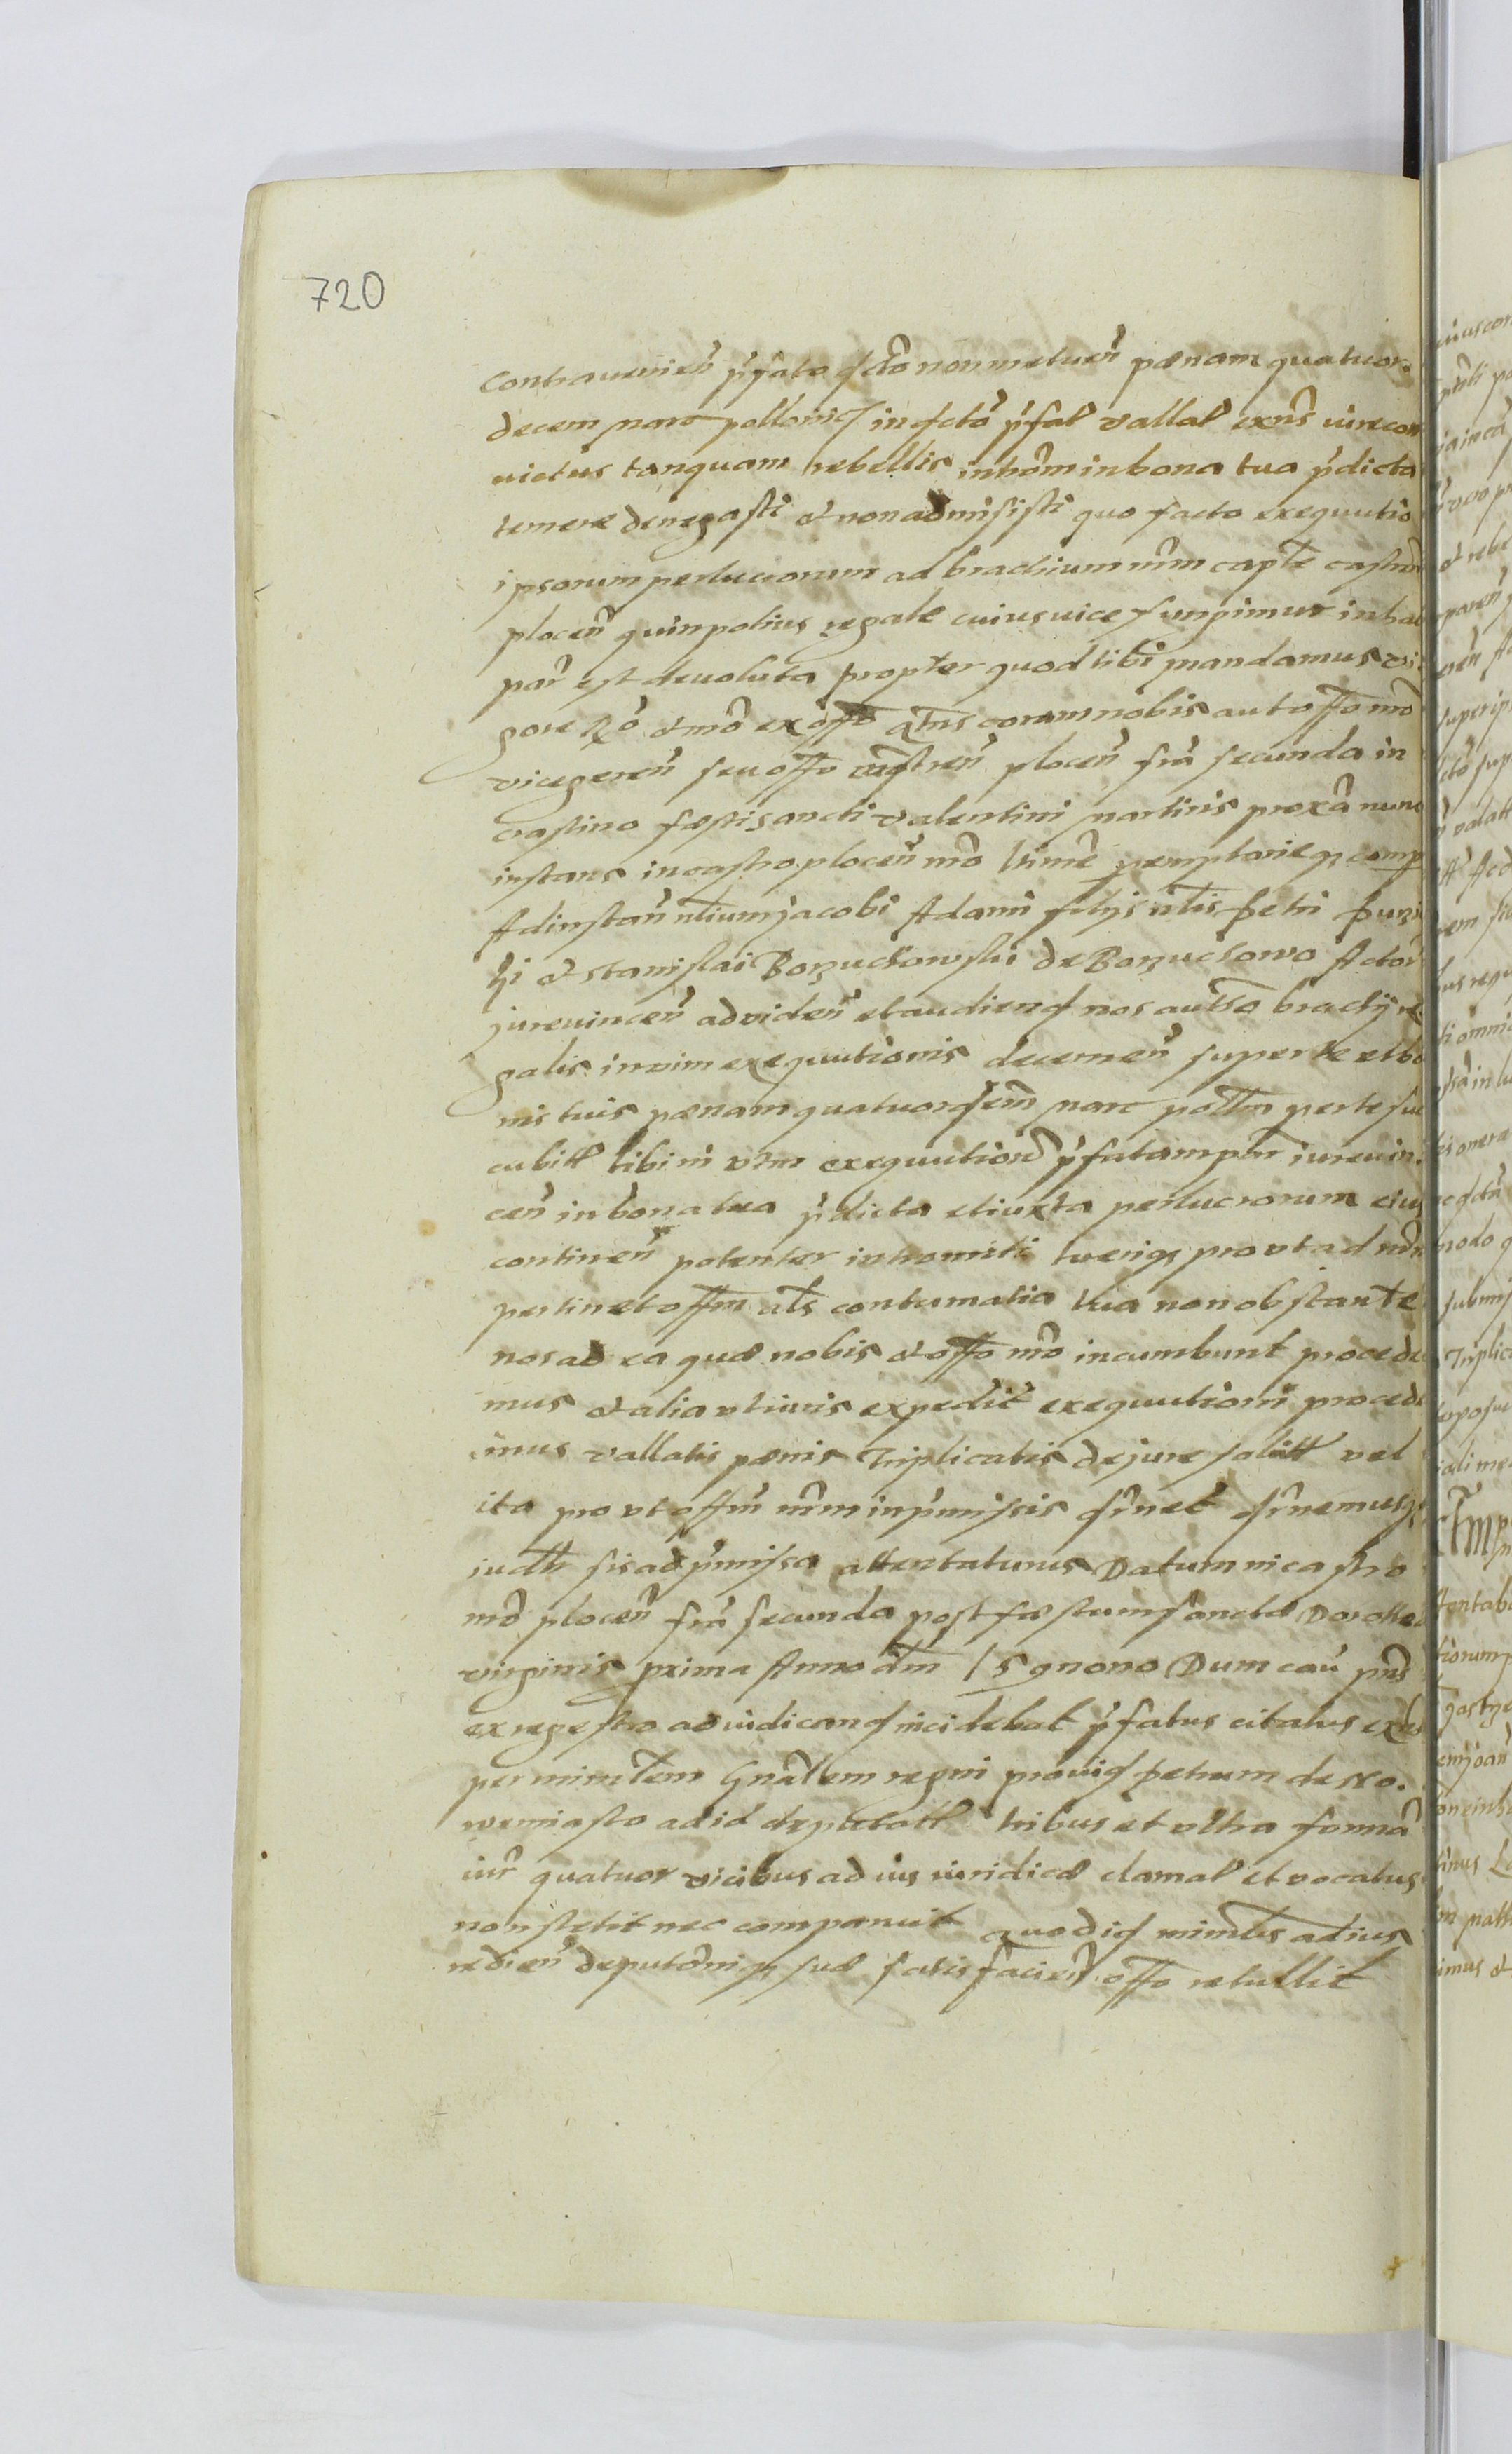 720
Contrauenien p̃fato ꝺ̃to non metuen̄ pœnam quatuor.
decem marc pollonic in ꝺcto p̃fat̃ vallat̃ exñs iure con
uictus tanquam rebellis intrõm in bona tua p̃dicta
temere denegasti et non admisisti quo facto exequutio
ipsorum perlucrorum ad brachium nr̃m capt̃e castren̄
plocen̄ quin potius regale cuius uice fungimur in hac
par̃ est deuoluta propter quod tibi mandamus vi
gore R̃o et nr̃o ex offo q̃tñs coram nobis aut offo nr̃o
vicegeren̄ seu offo cãstren̄ plocen̄ fr̃a secunda in
crastino festi sancti valentini martiris proxã nunc
instans in castro plocen̄ nr̃o ltime peremptorieqз comp
Ad instan̄ nliumjacobi Adami filijs nlis Petri
et stanislai Borzuchowski de Borzuchowo Actor̃
jureuincen̄ ad viden̄ et audienꝺ nos autho brachij re
galis in vim exequutionis decernen̄ super te et bo
nis tuis pœnam quatuordem̃ marc pollm per te suc
cubitt tibi in vim exequution̄ p̃fatam iureuin.
cen̄ in bona tua p̃dicta et iuxta perlucrorum eius
continen̄ potenter intromitti tueriqз prout ad nr̃m
pertinet offm als̃ contumatia tua non obstante
nos ad ea quæ nobis et offo nr̃o incumbunt procede
mus et alia vt iuris expedit exequutioni procede
mus vallatis pœnis Triplicatis de jure solitt vel
ita prout offm nr̃m in p̃missis ꝺr̃net ꝺr̃nemusqз
iudtr sis ad p̃missa attentaturus Datum in castro
nr̃o plocen̄ fr̃a secunda post festum sanctæ Dorothe
virginis prima Anno dm̃ 15 gnono Dum cau p̃ns
ex regestro ad iudicanꝺ incidebat p̃fatus citatus
per ministem̃ Gnãlem regni prouiꝺ petrum de No.
wemiasto ad id deputatt tribus et vltra formã
iur̃ quatuor vicibus ad ius iuridicæ clamat̃ et vocatus
non stetit nec comparuit quod iꝺ minist̃s ad ius
redien̄ deputõniqз suæ satis facien̄ offo retullit